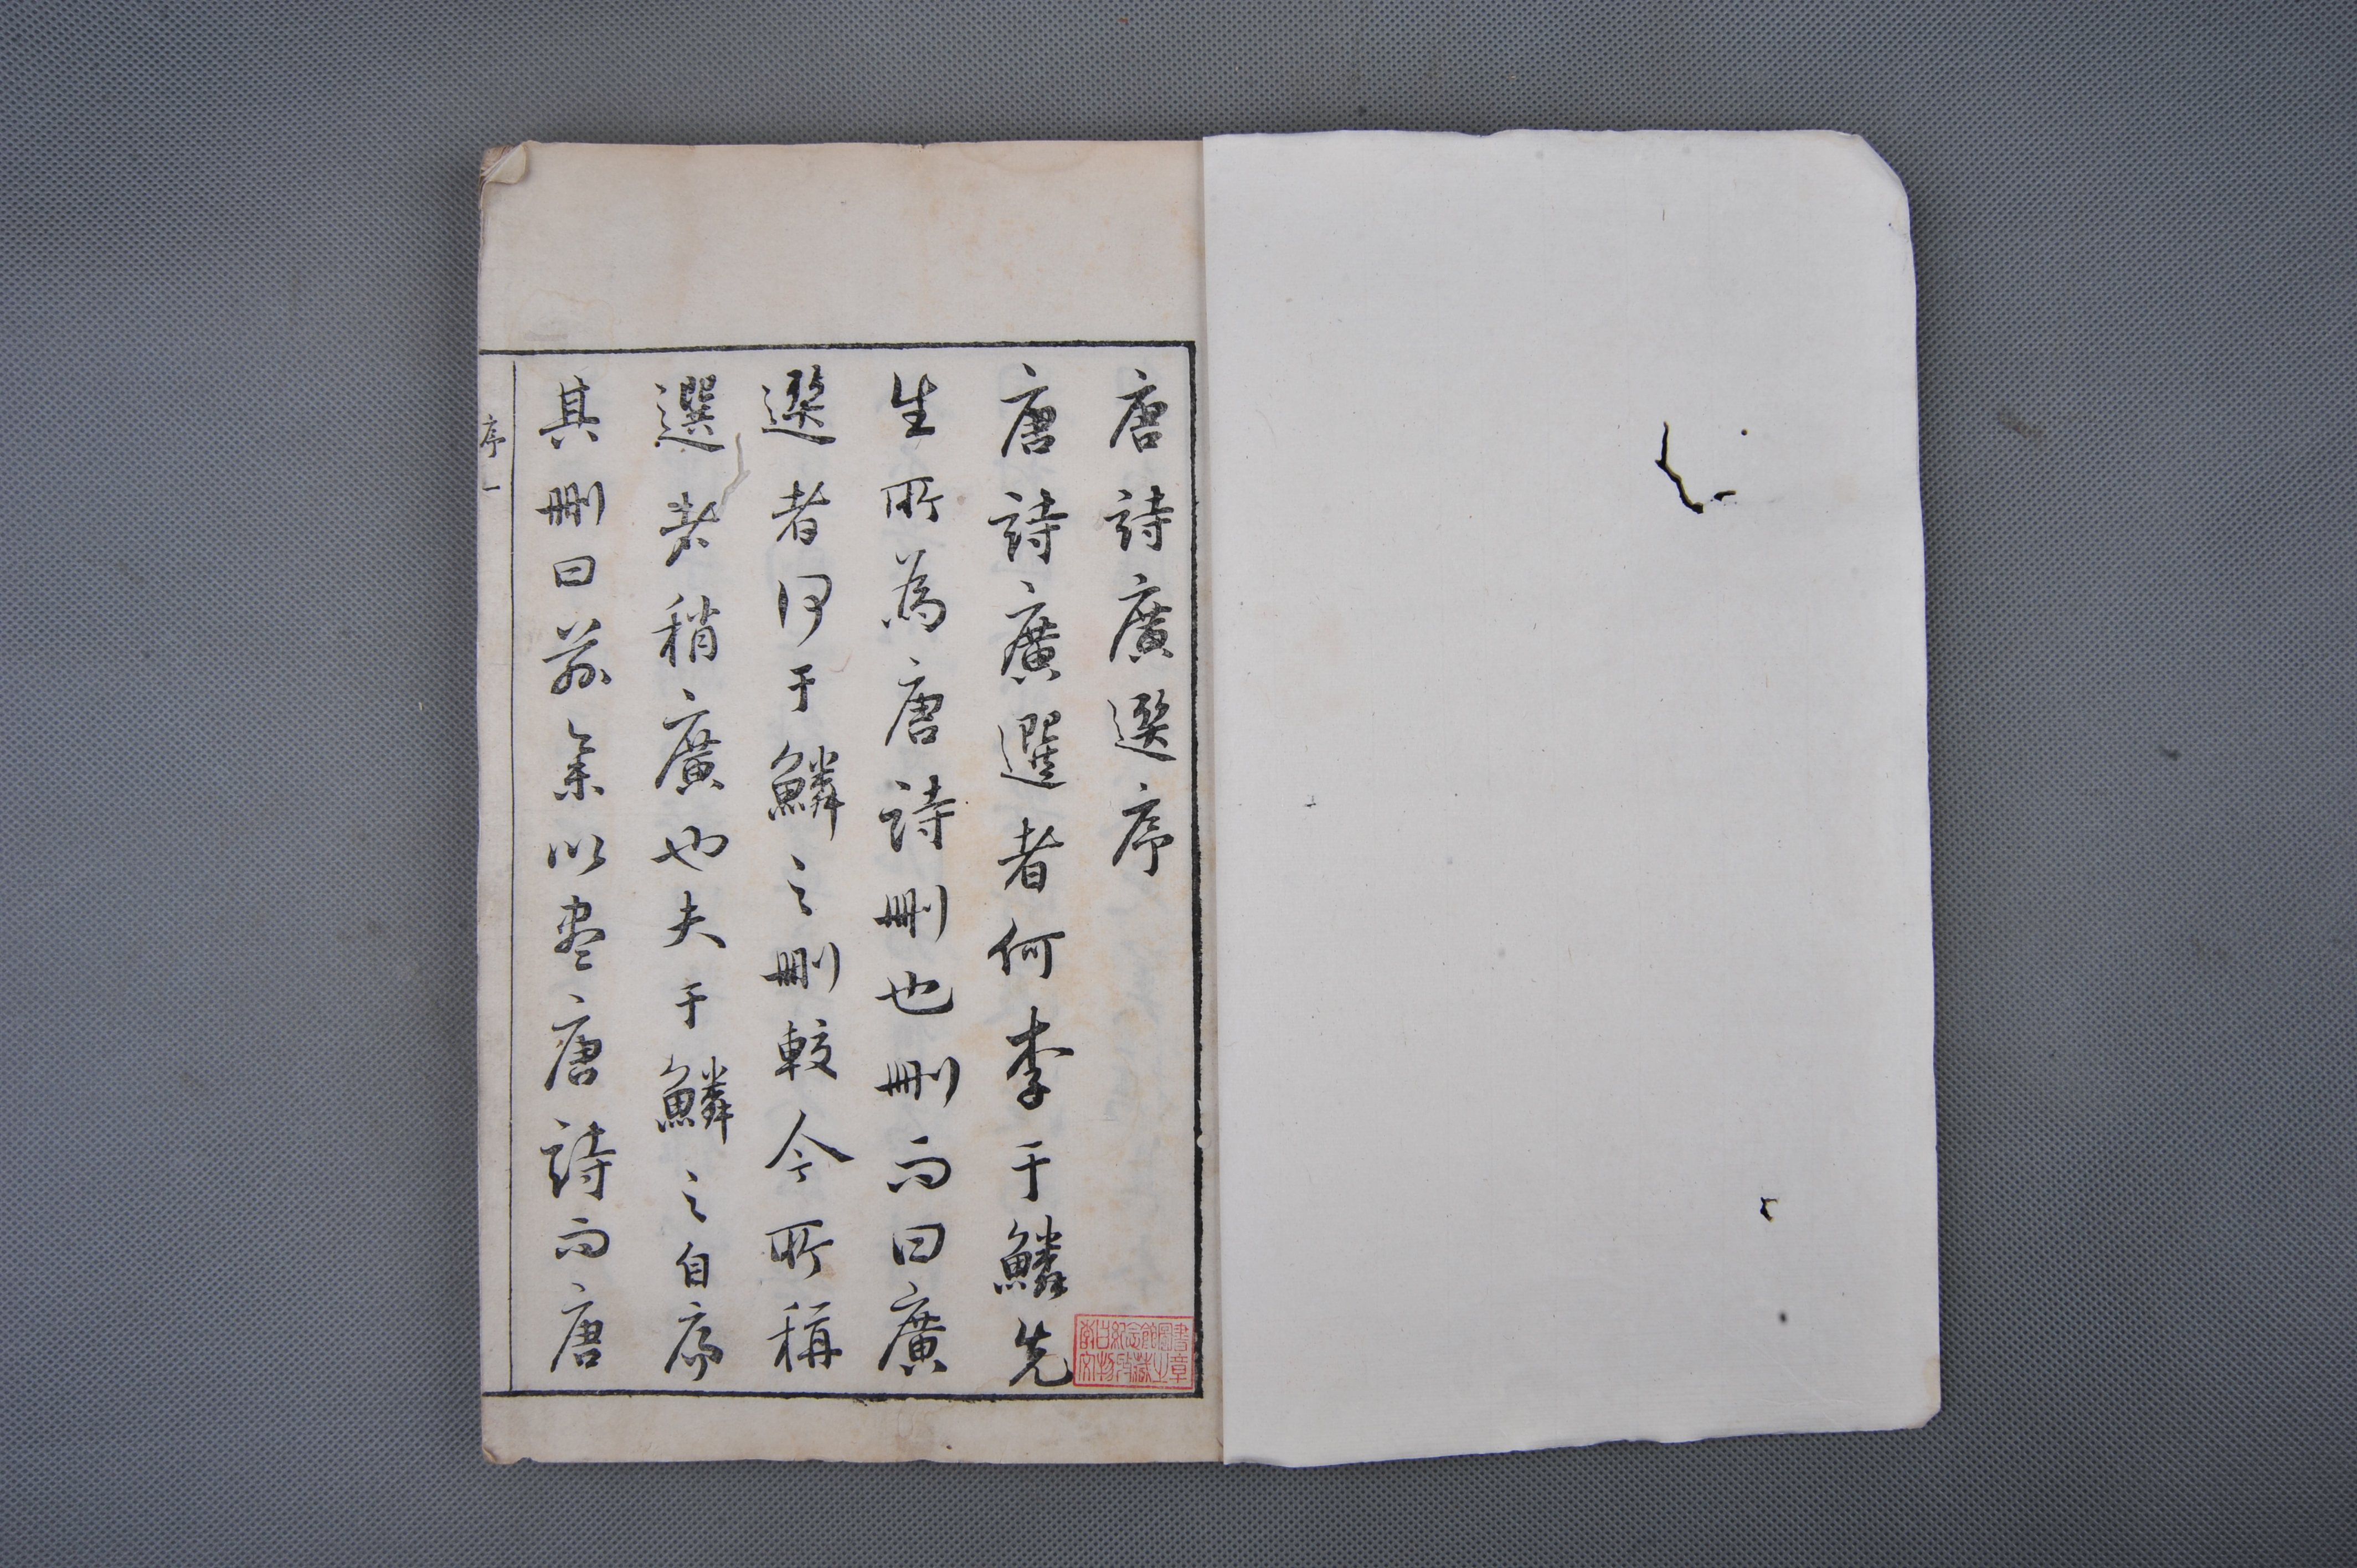 唐詩廣選序
唐詩廣選者何李于鱗先
生所為唐詩刪也刪而曰廣
選者何于鱗之刪較今所稱
選者稍廣也夫于鱗之自序
其刪曰茲集以盡唐詩而唐
序一
書章圖之館藏念段紀物甘文李